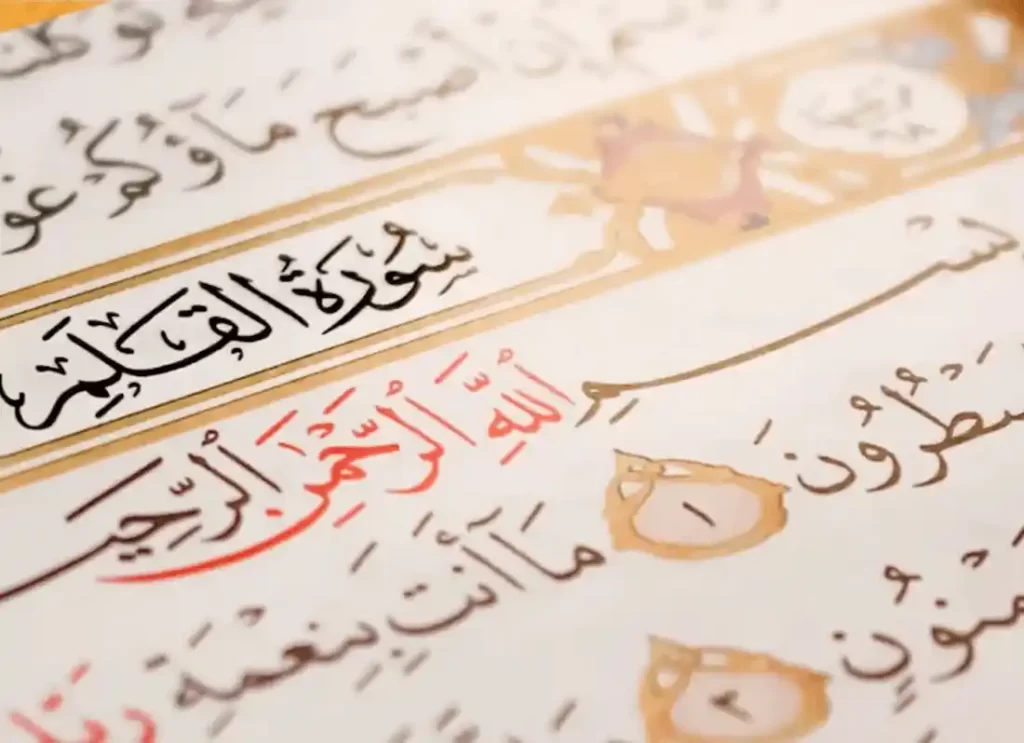 أَصْبَحَ مَآؤُكُمْ غَو
سُورَةُ القَلَمِ
سْمِ اللَّهِ الرَّحْمَٰنِ الرَّحِي
سْطُرُونَ ١ مَآ أَنتَ بِنِعْمَةِ رَبِّ
مْنُونٍ ٣